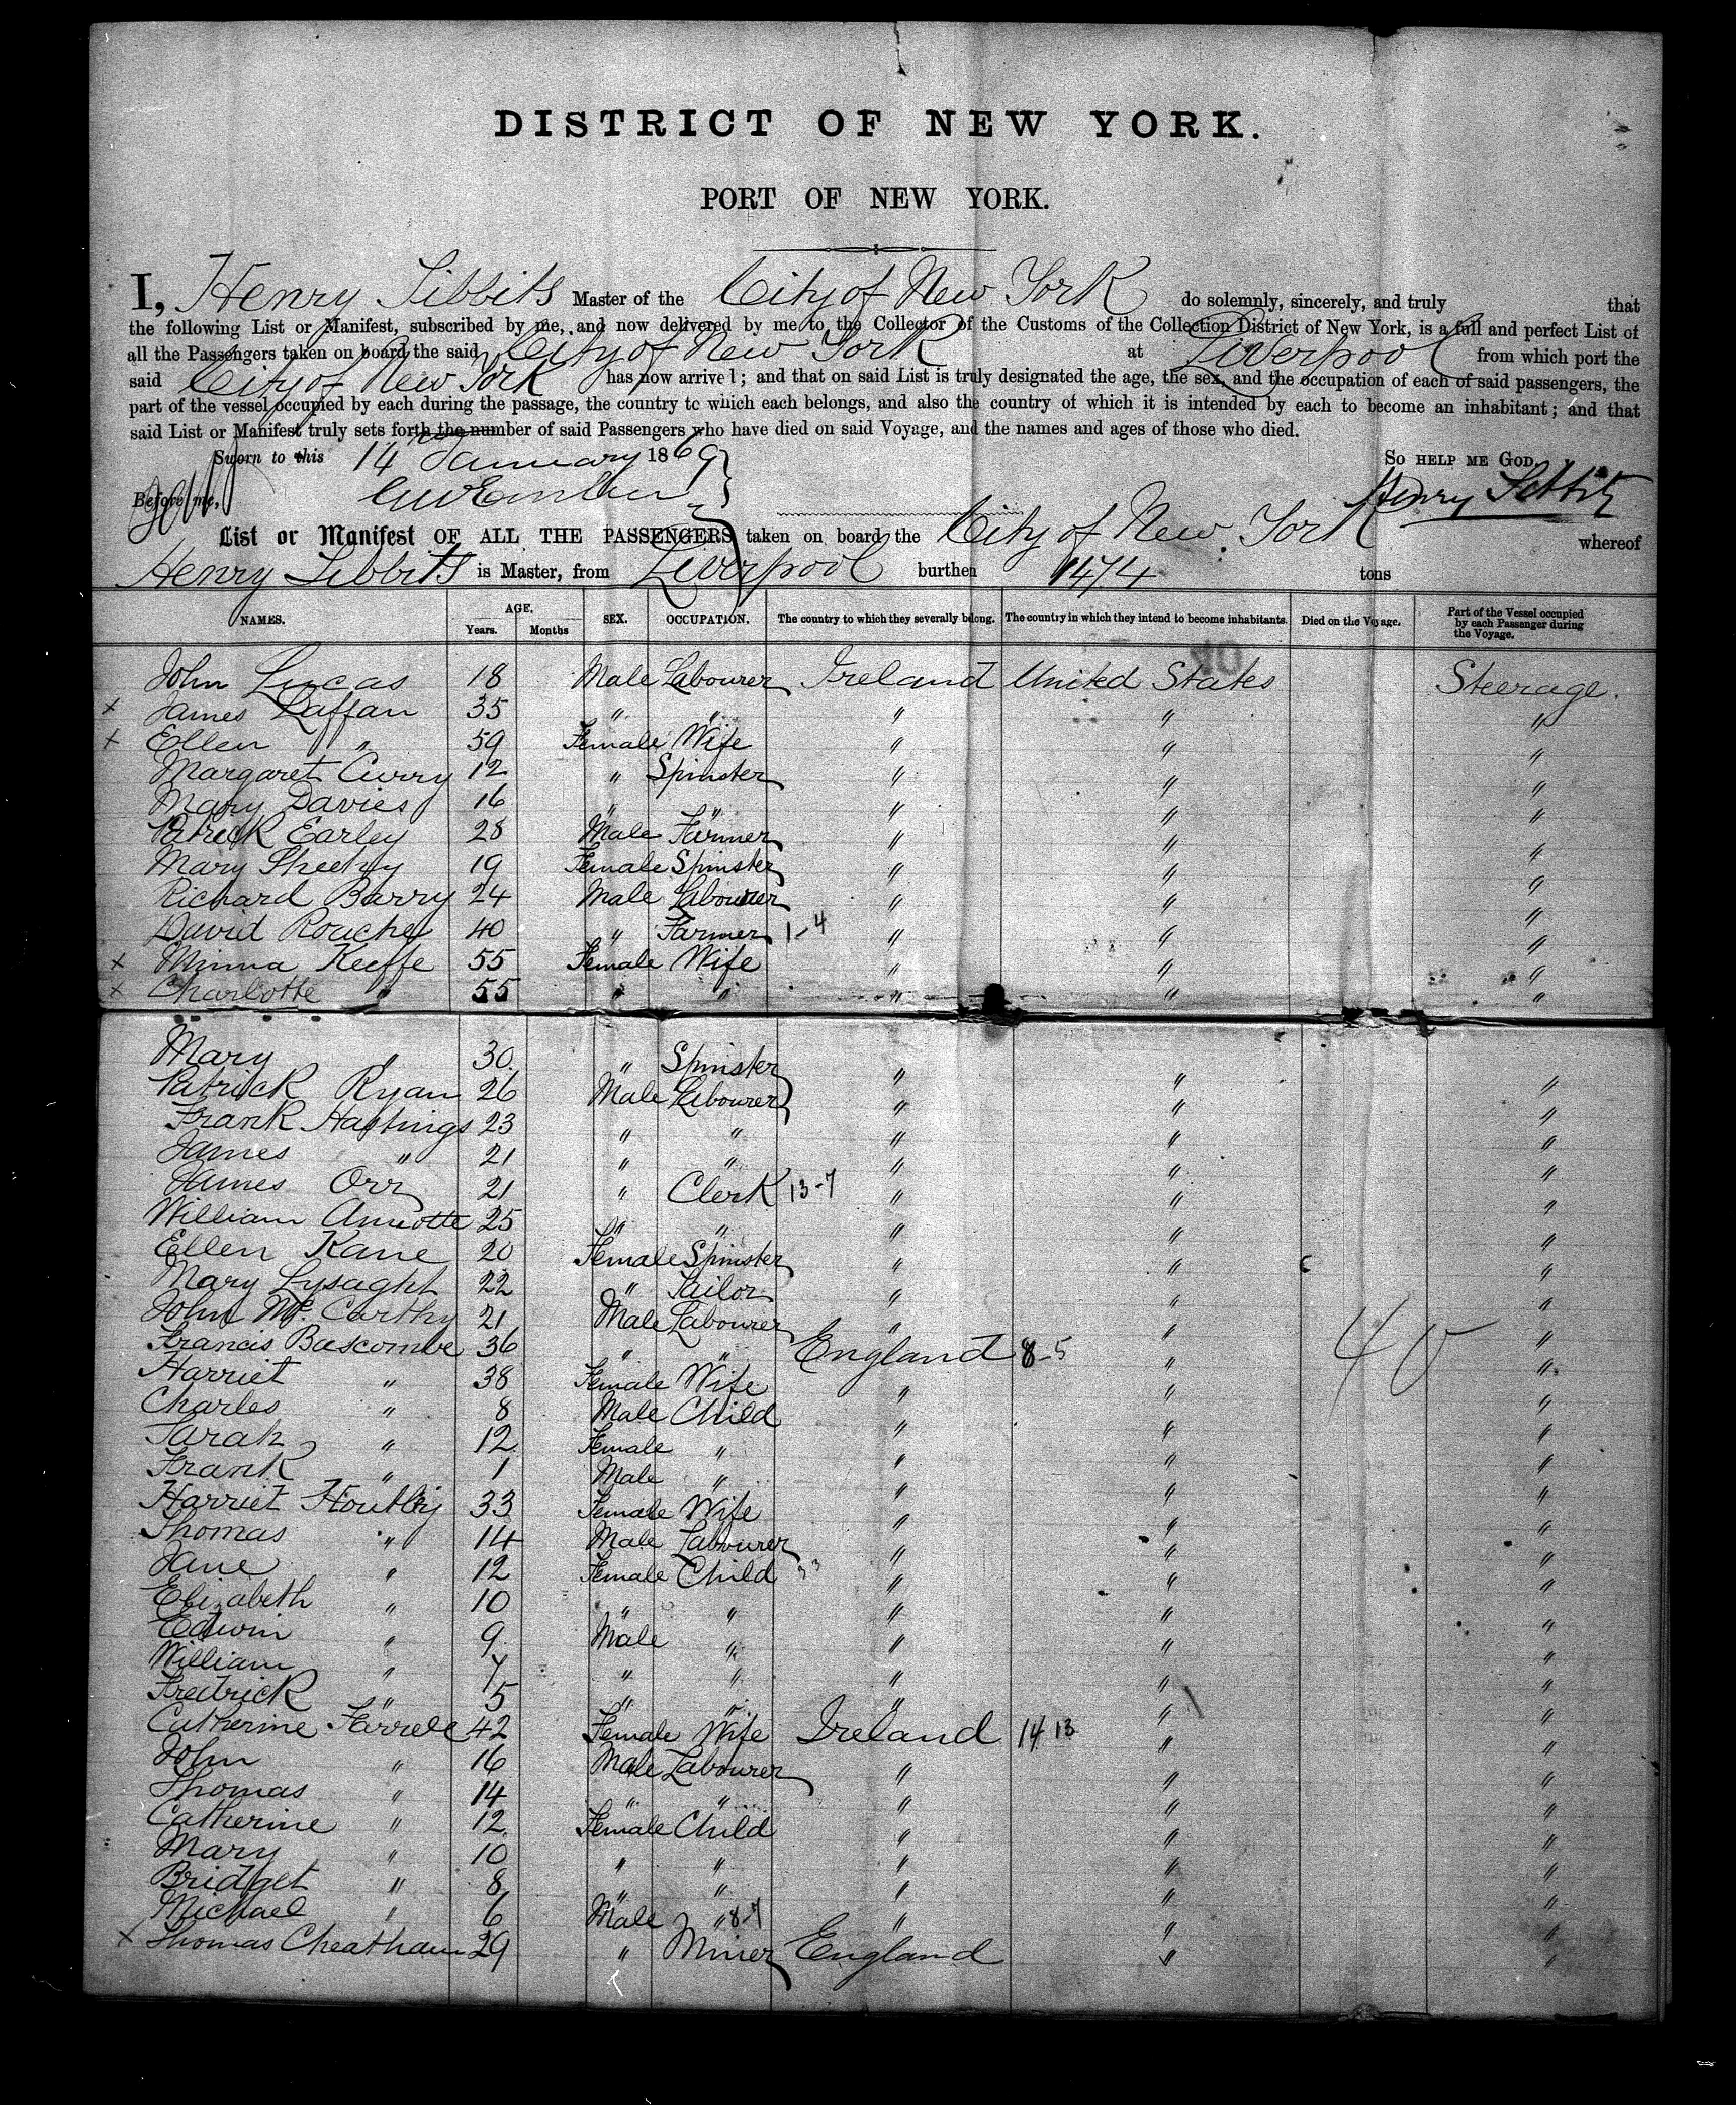 DISTRICT OF NEW YORK.
PORT OF NEW YORK.
I, Henry Tibbits Master of the City of New York do solemnly, sincerely, and truly that
the following List or Manifest, subscribed by me, and now delivered by me to the Collector of the Customs of the Collection District of New York, is a full and perfect List of
all the Passengers taken on board the said City of New York at Liverpool from which port the
said City of New York has now arrived; and that on said List is truly designated the age, the sex, and the occupation of each of said passengers, the
part of the vessel occupied by each during the passage, the country to which each belongs, and also the country of which it is intended by each to become an inhabitant; and that
said List or Manifest truly sets forth the number of said Passengers who have died on said Voyage, and the names and ages of those who died.
Sworn to this 14 January 1869 So HELP ME GOD.
Before me, Henry Tibbits
List or Manifest OF ALL THE PASSENGERS taken on board the City of New York whereof
Henry Tibbits is Master, from Liverpool burthen 1474 tons
NAMES. AGE. Years. Months SEX. OCCUPATION. The country to which they severally belong. The country in which they intend to become inhabitants. Died on the Voyage. Part of the Vessel occupied by each Passenger during the Voyage.
John Lucas 18 Male Labourer Ireland United States Steerage.
x James Laffan 35 " " " " "
x Ellen " 59 Female Wife " " "
Margaret Curry 12 " Spinster " " "
Mary Davies 16 " " " " "
Patrick Earley 28 Male Farmer " " "
Mary Sheehy 19 Female Spinster " " "
Richard Barry 24 Male Labourer " " "
David Rouche 40 " Farmer 1-4 " " "
x Minna Keeffe 55 Female Wife " " "
x Charlotte " 55 " " " " "
Mary " 30 " Spinster " " "
Patrick Ryan 26 Male Labourer " " "
Frank Hastings 23 " " " " "
James " 21 " " " " "
James Orr 21 " Clerk 13-7 " " "
William 25 " " " " "
Ellen Kane 20 Female Spinster " " "
Mary Lysaght 22 " Tailor " " "
John Mc Carthy 21 Male Labourer " " "
Francis Bascombe 36 " " England 8-5 " "
Harriet " 38 Female Wife " " "
Charles " 8 Male Child " " "
Sarah " 12 Female " " " "
Frank " 1 Male " " " "
Harriet 33 Female Wife " " "
Thomas " 14 Male Labourer " " "
Jane " 12 Female Child " " "
Elizabeth " 10 " " " " "
Edwin " 9 Male " " " "
William " 7 " " " " "
Fredrick " 5 " " " " "
Catherine Farrell 42 Female Wife Ireland 14 13 " "
John " 16 Male Labourer " " "
Thomas " 14 " " " " "
Catherine " 12 Female Child " " "
Mary " 10 " " " " "
Bridget " 8 " " " " "
Michael " 6 Male " 8-7 " " "
x Thomas Cheatham 29 " Miner England " "